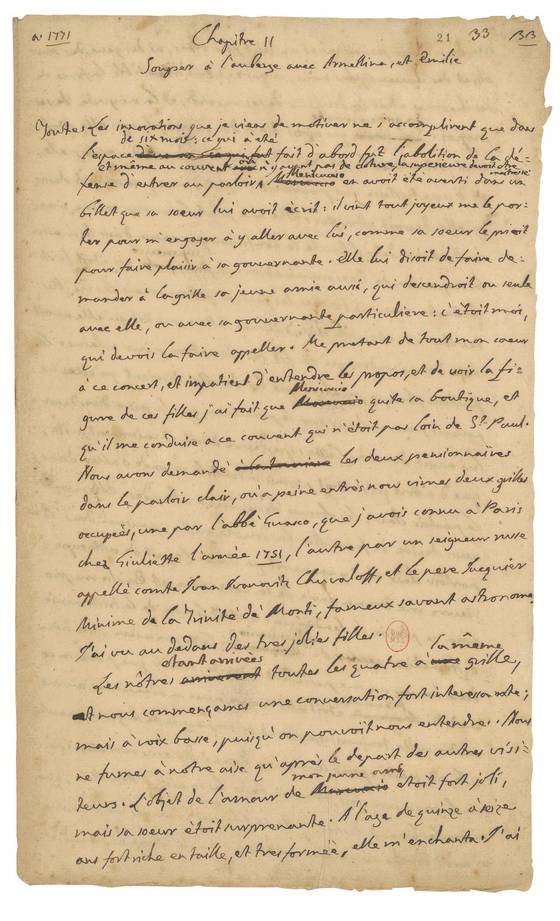 a: 1771
21 33
Chapitre II
Souper à l'auberge avec Armelline, et Emilie
Toutes les innovations que je viens de motiver ne s'accomplirent que dans
de six mois: ce qui a été
l'espace fait d'abord fut l'abolition de la dé-
et même au couvent où n'y ayant pas de cloture, la superieure devoit être maitresse
fense d'entrer au parloir. Menicuccio en avoit été averti dans un
billet que sa soeur lui avoit écrit: il vint tout joyeux me le por-
ter pour m'engager à y aller avec lui, comme sa soeur le prioit
pour faire plaisir à sa gouvernante. Elle lui disoit de faire de-
mander à la grille sa jeune amie aussi, qui descendroit ou seule
avec elle, ou avec sa gouvernante particuliere: c'étoit moi,
qui devois la faire appeller. Me pretant de tout mon coeur
à ce concert, et impatient d'entendre les propos, et de voir la fi-
Menicuccio
gure de ces filles j'ai fait que quite sa boutique, et
qu'il me conduise a ce couvent qui n'étoit pas loin de St. Paul.
Nous avons demandé les deux pensionnaires
dans le parloir clair, où à peine entrés nous vimes deux grilles
occupées, une par l'abbé Guasco, que j'avois connu à Paris
chez Giuliette l'année 1751, l'autre par un seigneur russe
appellé comte Ivan Ivanovitz Chuvaloff, et le pere Jacquier
Minime de la Trinité dé Monti, fameux savant astronome.
J'ai vu au dedans des tres jolies filles.
etant arrivées la même
Les nôtres toutes les quatre a grille,
nous commençames une conversation fort interessante;
mais à voix basse, puisqu'on pouvoit nous entendre. Nous
ne fumes à notre aise qu'après le depart des autres visi-
mon jeune ami
teurs. L'objet de l'amour de etoit fort joli,
mais sa soeur étoit surprenante. A l'age de quinze à seize
ans fort riche en taille, et tres formée, elle m'enchanta. J'ai